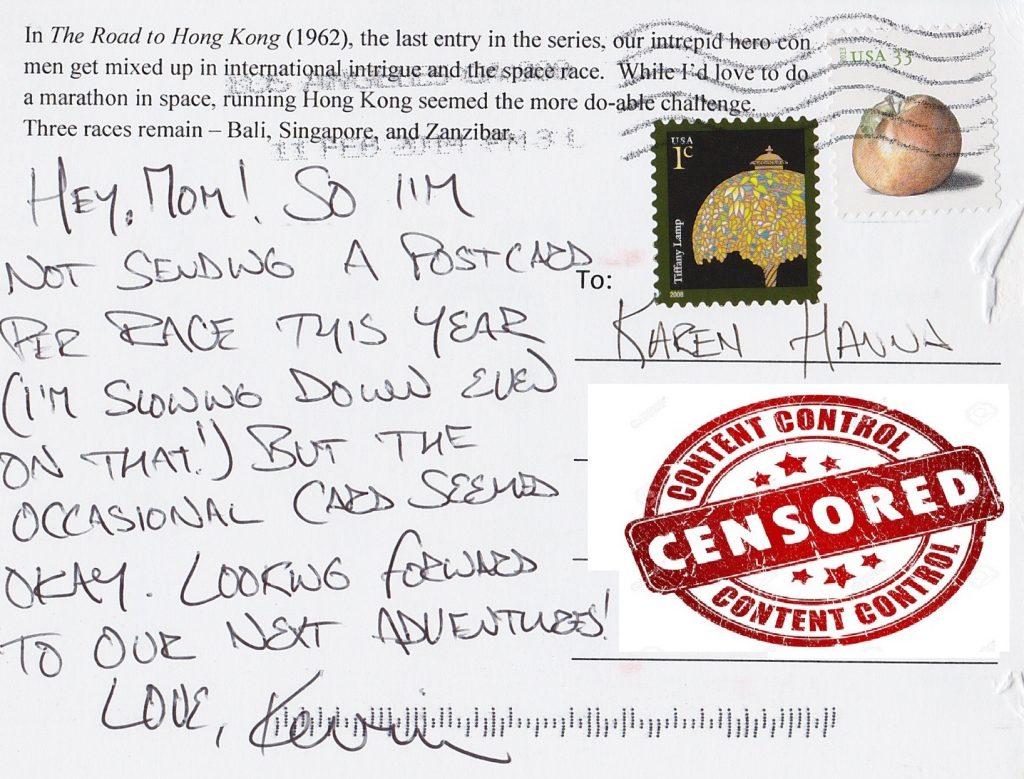 In The Road to Hong Kong (1962), the last entry in the series, our intrepid hero con
men get mixed up in international intrigue and the space race. While I'd love to do
a marathon in space, running Hong Kong seemed the more do-able challenge.
Three races remain – Bali, Singapore, and Zanzibar.
USA 33
USA
1c
Tiffany Lamp
2008
HEY, MOM! SO I'M
NOT SENDING A POSTCARD
PER RACE THIS YEAR
(I'M SLOWING DOWN EVEN
ON THAT!) BUT THE
OCCASIONAL CARD SEEMED
OKAY. LOOKING FORWARD
TO OUR NEXT ADVENTURES!
LOVE, Kevin
To:
KAREN HANNA
CONTENT CONTROL
CENSORED
CONTENT CONTROL